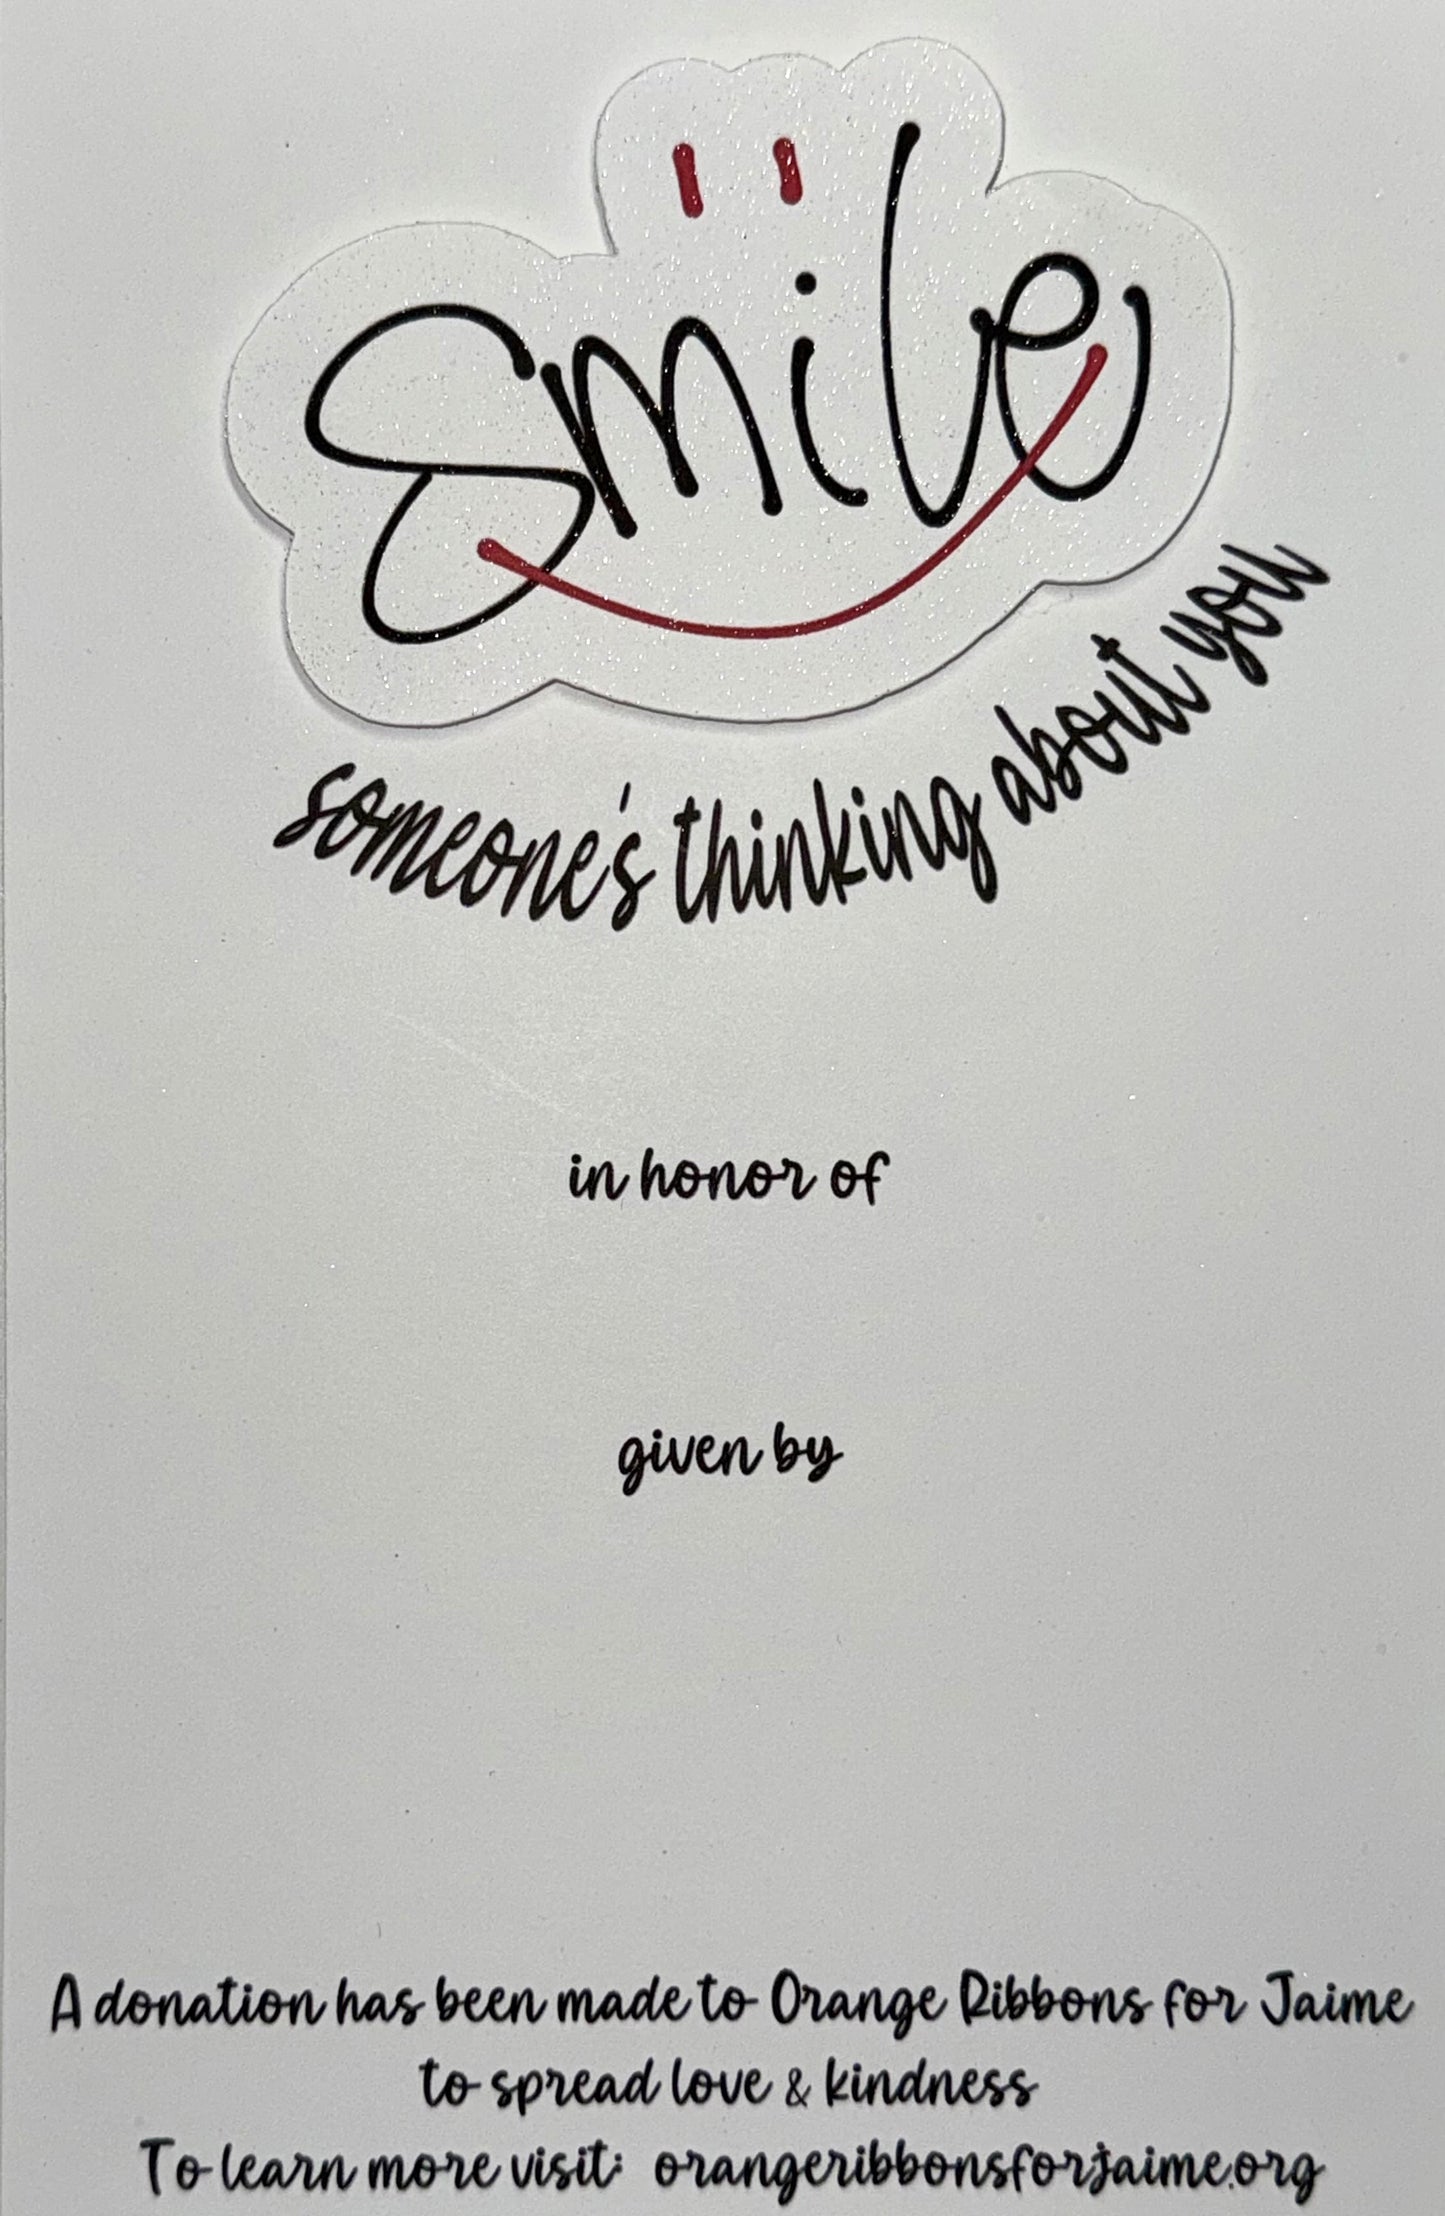 Smile
someone's thinking about you
in honor of
given by
A donation has been made to Orange Ribbons for Jaime
to spread love & kindness
To learn more visit: orangeribbonsforjaime.org